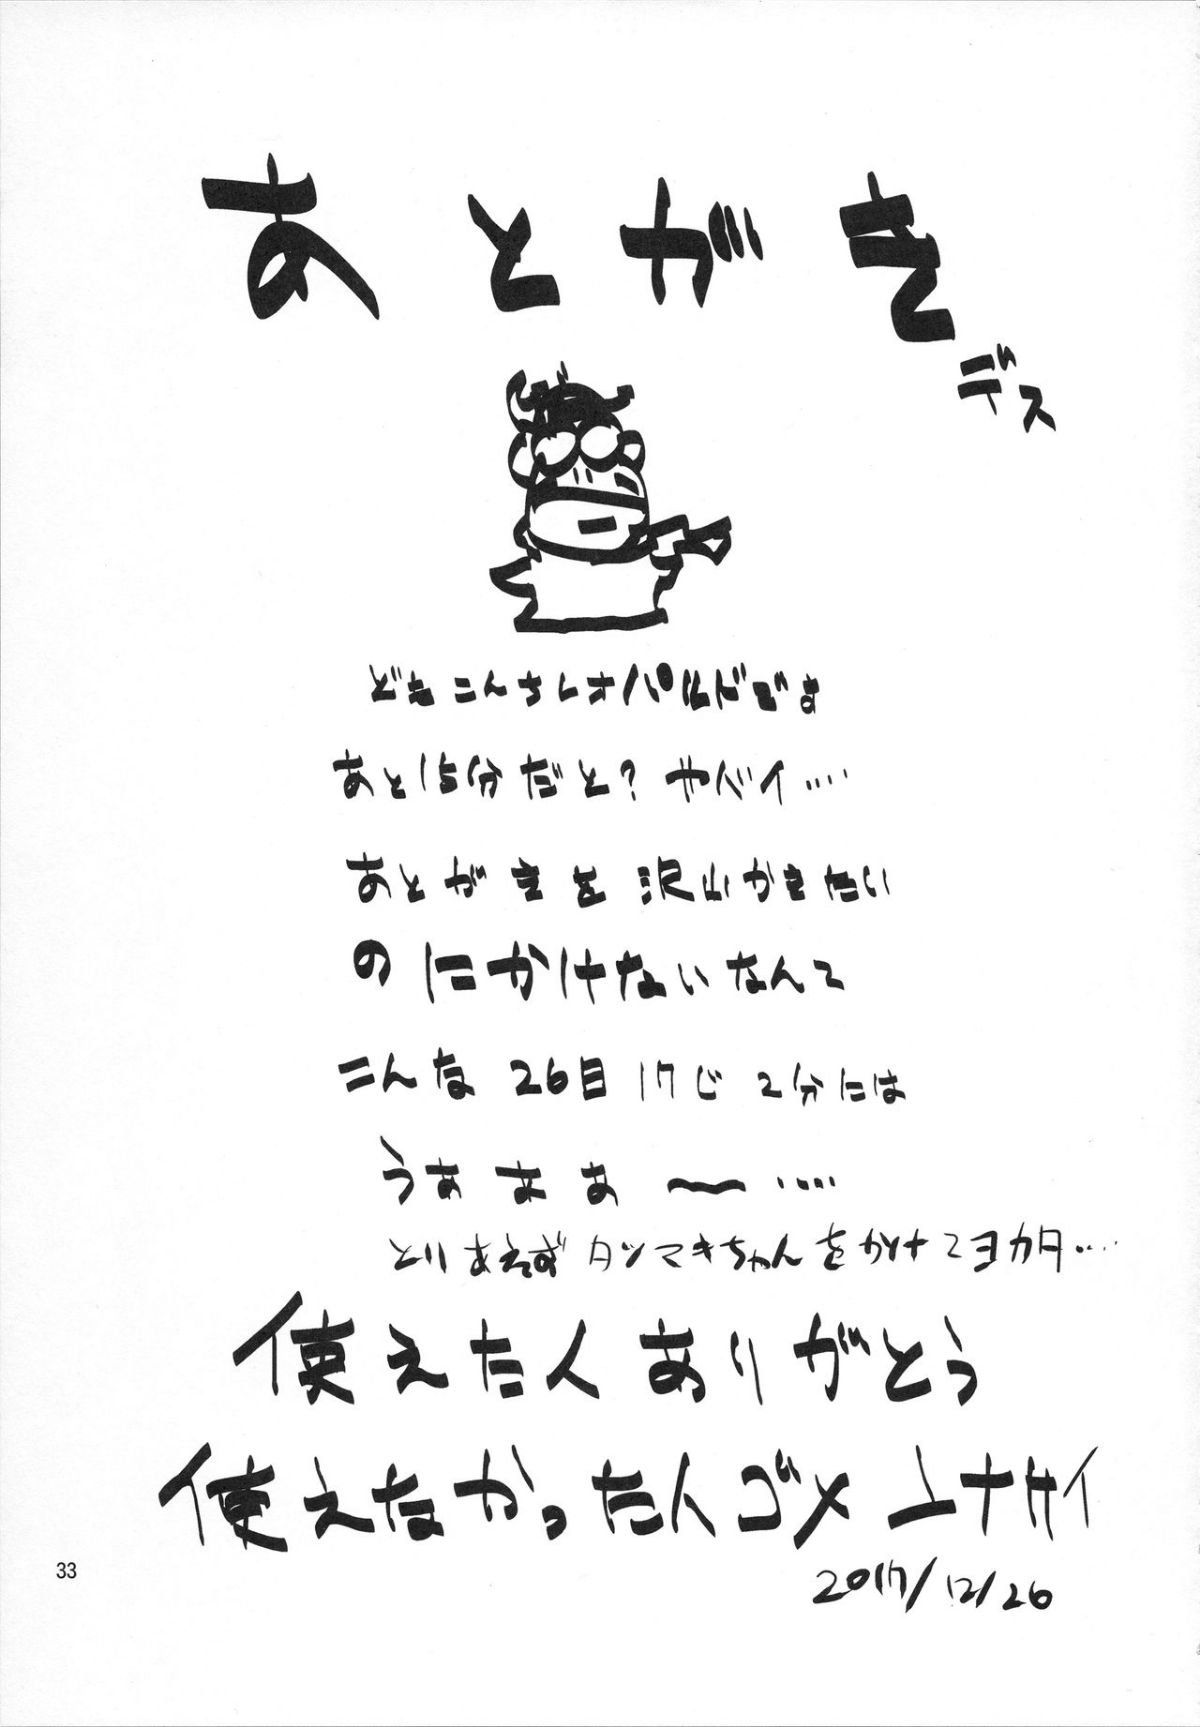 あとがき
デス
どもこんちレオパルドです
あと15分だと?ヤベイ....
あとがきを沢山かきたい
のにかけないなんて
こんな26日17じ2分には
うああぁ〜.....
とりあえずタツマキちゃんをかけてヨカタ....
使えた人ありがとう
使えなかった人ゴメンナサイ
2017/12/26
33